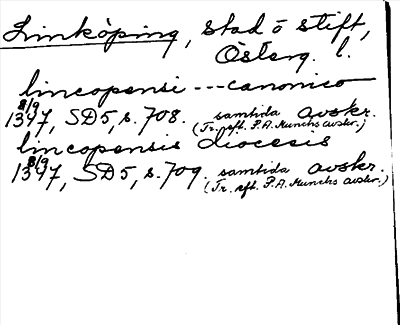 Linköping, stad o stift,
Österg. l.
lincopensi --- canonico
8/9
1347, SD5, s. 708. samtida avskr.
(Tr. eft. P. A. Munchs avskr.)
lincopensis diocesis
8/9
1347, SD5, s. 709. samtida avskr.
(Tr. eft. P. A. Munchs avskr.)